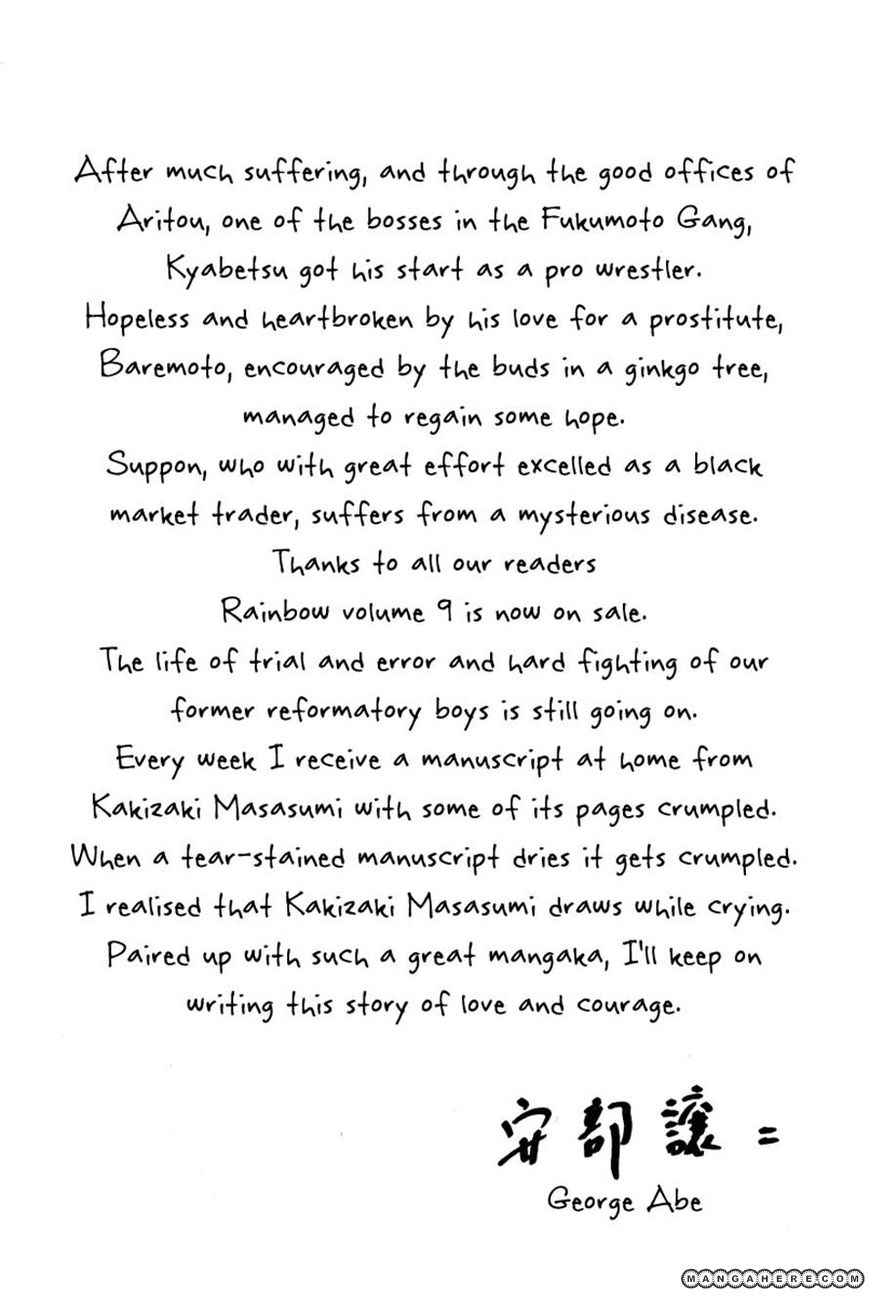 After much suffering, and through the good offices of
Aritou, one of the bosses in the Fukumoto Gang,
Kyabetsu got his start as a pro wrestler.
Hopeless and heartbroken by his love for a prostitute,
Baremoto, encouraged by the buds in a ginkgo tree,
managed to regain some hope.
Suppon, who with great effort excelled as a black
market trader, suffers from a mysterious disease.
Thanks to all our readers
Rainbow volume 9 is now on sale.
The life of trial and error and hard fighting of our
former reformatory boys is still going on.
Every week I receive a manuscript at home from
Kakizaki Masasumi with some of its pages crumpled.
When a tear-stained manuscript dries it gets crumpled.
I realised that Kakizaki Masasumi draws while crying.
Paired up with such a great mangaka, I'll keep on
writing this story of love and courage.
安部譲二
George Abe
MANGAHERE.COM